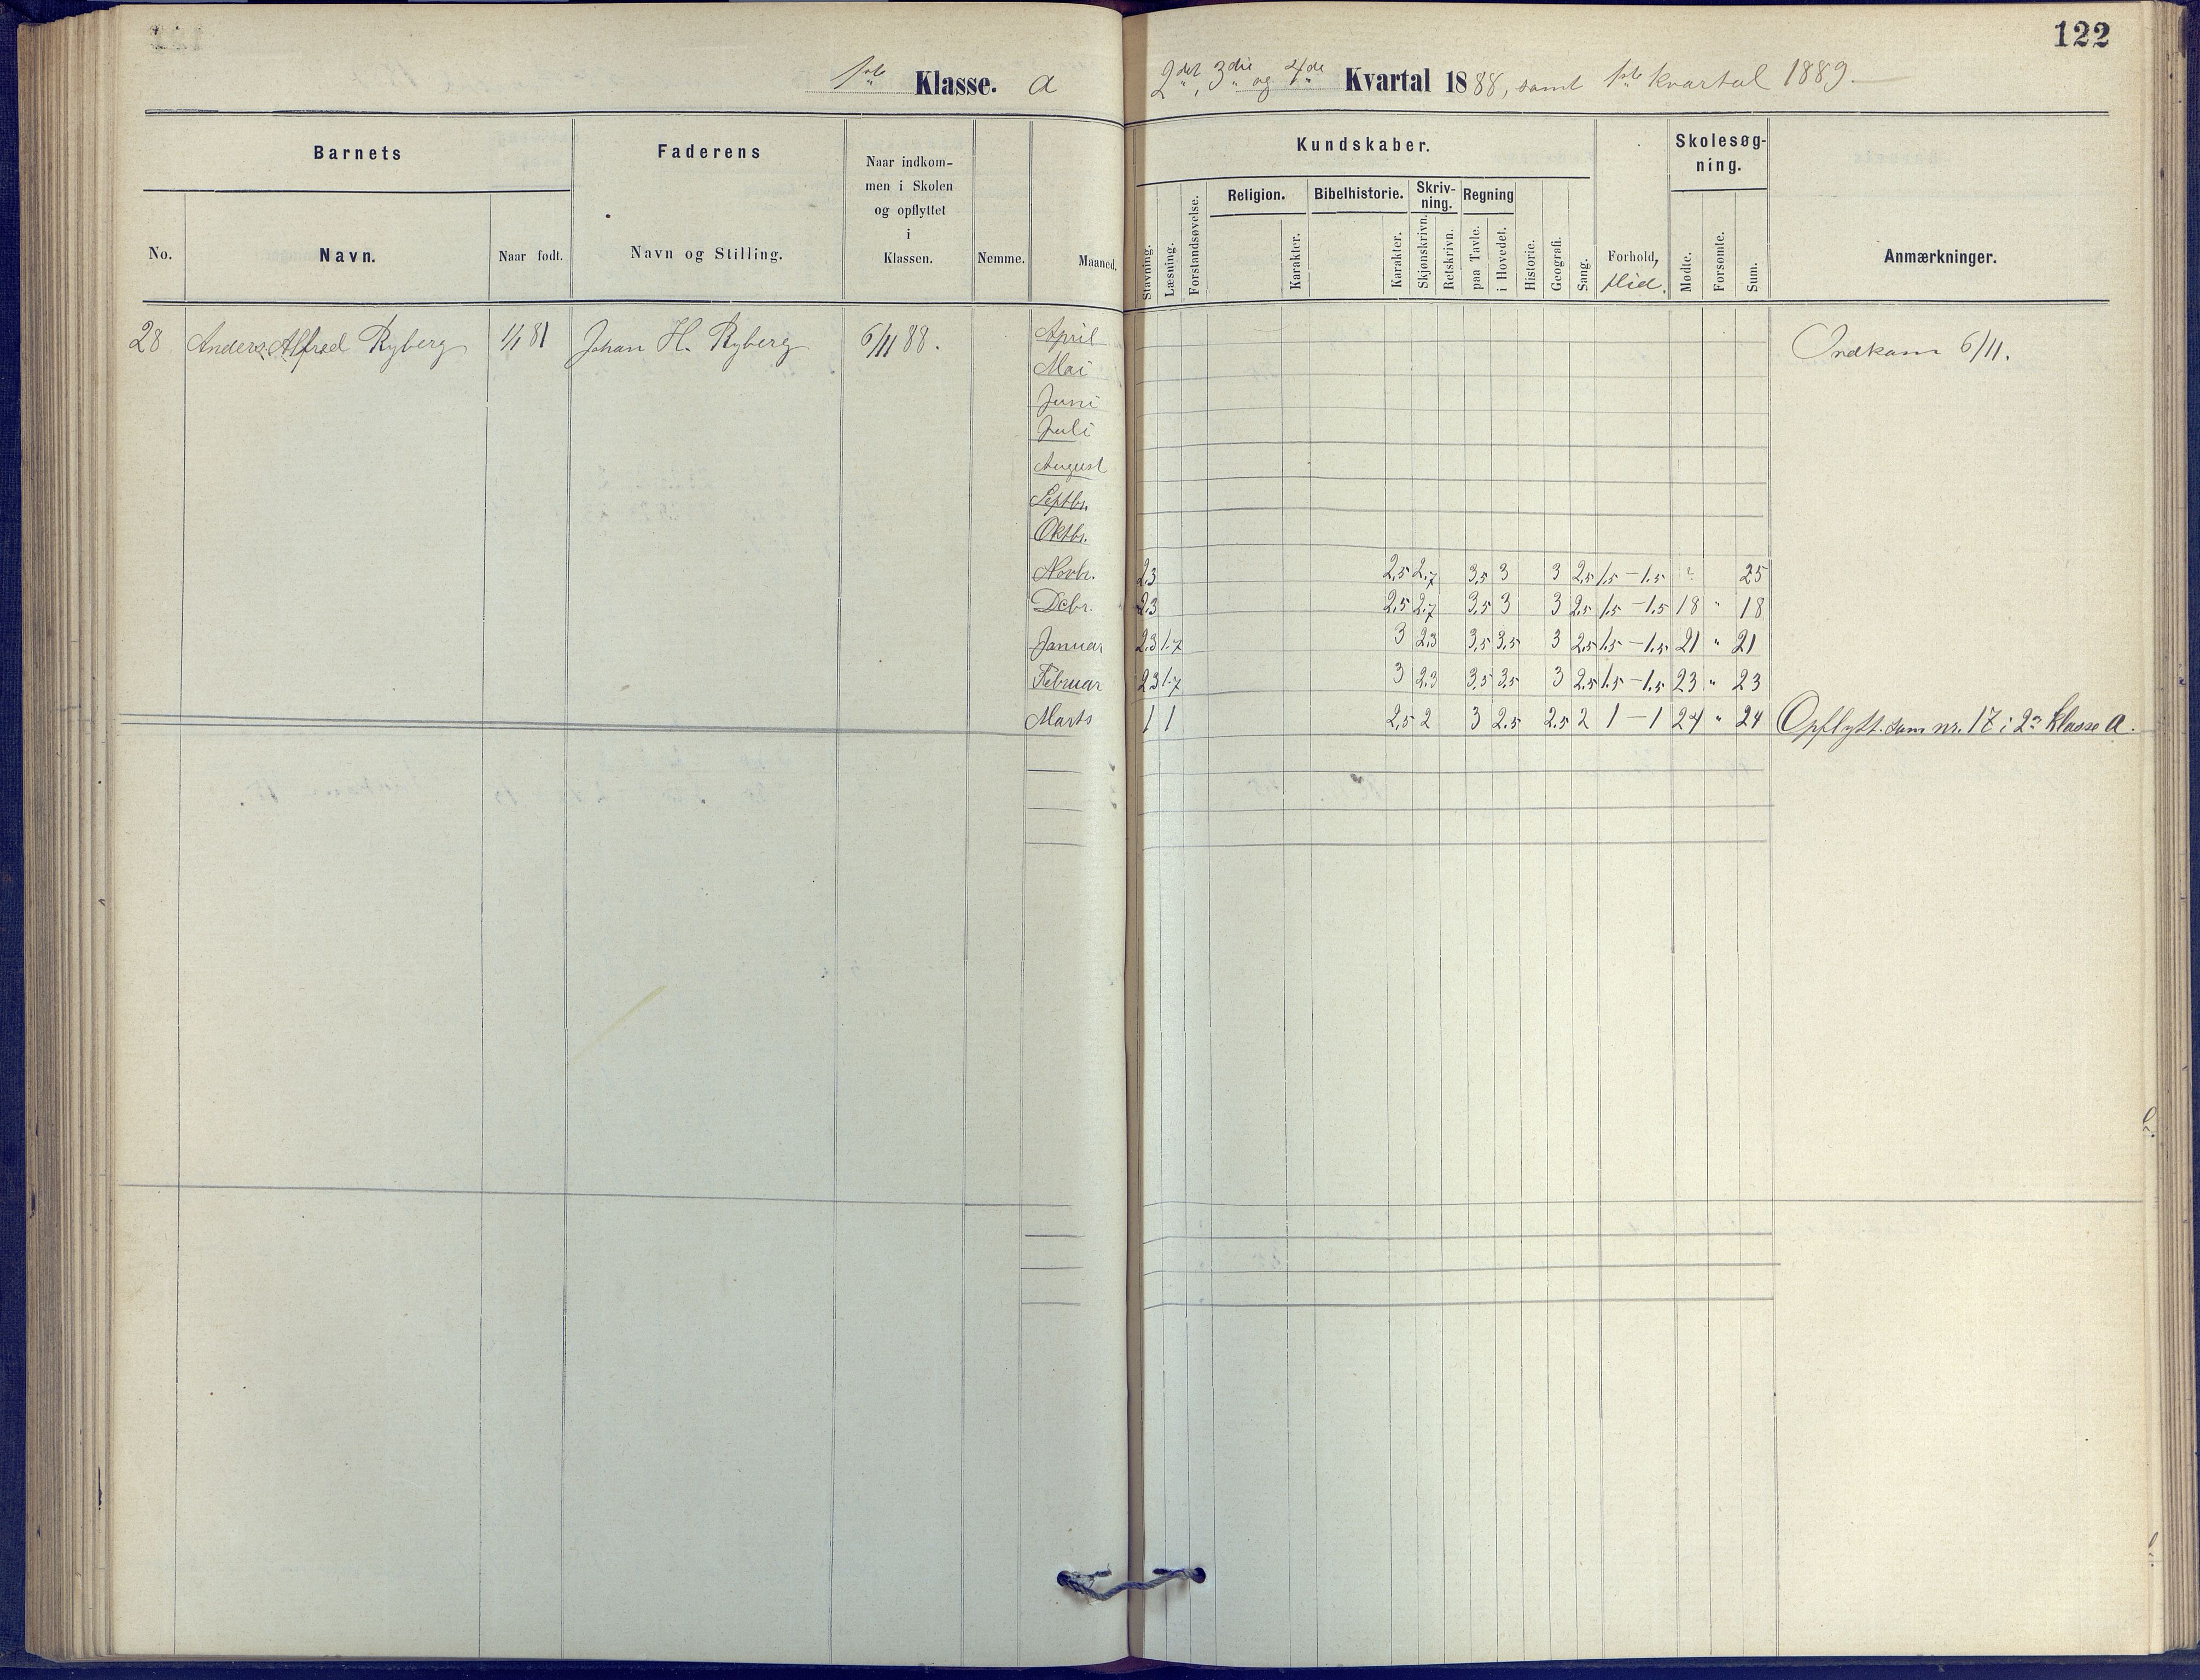 122
1ste Klasse. a
2det, 3die og 4de Kvartal 1888, samt 1ste kvartal 1889.
Barnets
Faderens
Naar indkom-
men i Skolen
og opflyttet
i
Klassen.
Kundskaber.
Skolesøg-
ning.
No.
Navn.
Naar født.
Navn og Stilling.
Nemme.
Maaned.
Stavning.
Læsning.
Forstandsøvelse.
Religion.
Karakter.
Bibelhistorie.
Karakter.
Skriv-
ning.
Skjønskrivn.
Retskrivn.
Regning
paa Tavle.
i Hovedet.
Historie.
Geografi.
Sang.
Forhold,
flid.
Mødte.
Forsømte.
Sum.
Anmærkninger.
28 Anders Alfred Ryberg 1/1 81 Johan H. Ryberg 6/11 88. April Indkom 6/11.
Mai
Juni
Juli
August
Septbr.
Oktbr.
Novbr. 2,3 2,5 2,7 3,5 3 3 2,5 1,5 - 1,5 25
Decbr. 2,3 2,5 2,7 3,5 3 3 2,5 1,5 - 1,5 18 " 18
Januar 2,3 1,7 3 2,3 3,5 3,5 3 2,5 1,5 - 1,5 21 " 21
Februar 2,3 1,7 3 2,3 3,5 3,5 3 2,5 1,5 - 1,5 23 " 23
Marts 1 1 2,5 2 3 2,5 2,5 2 1 - 1 24 " 24 Opflytt. som nr. 17 i 2n Klasse a.